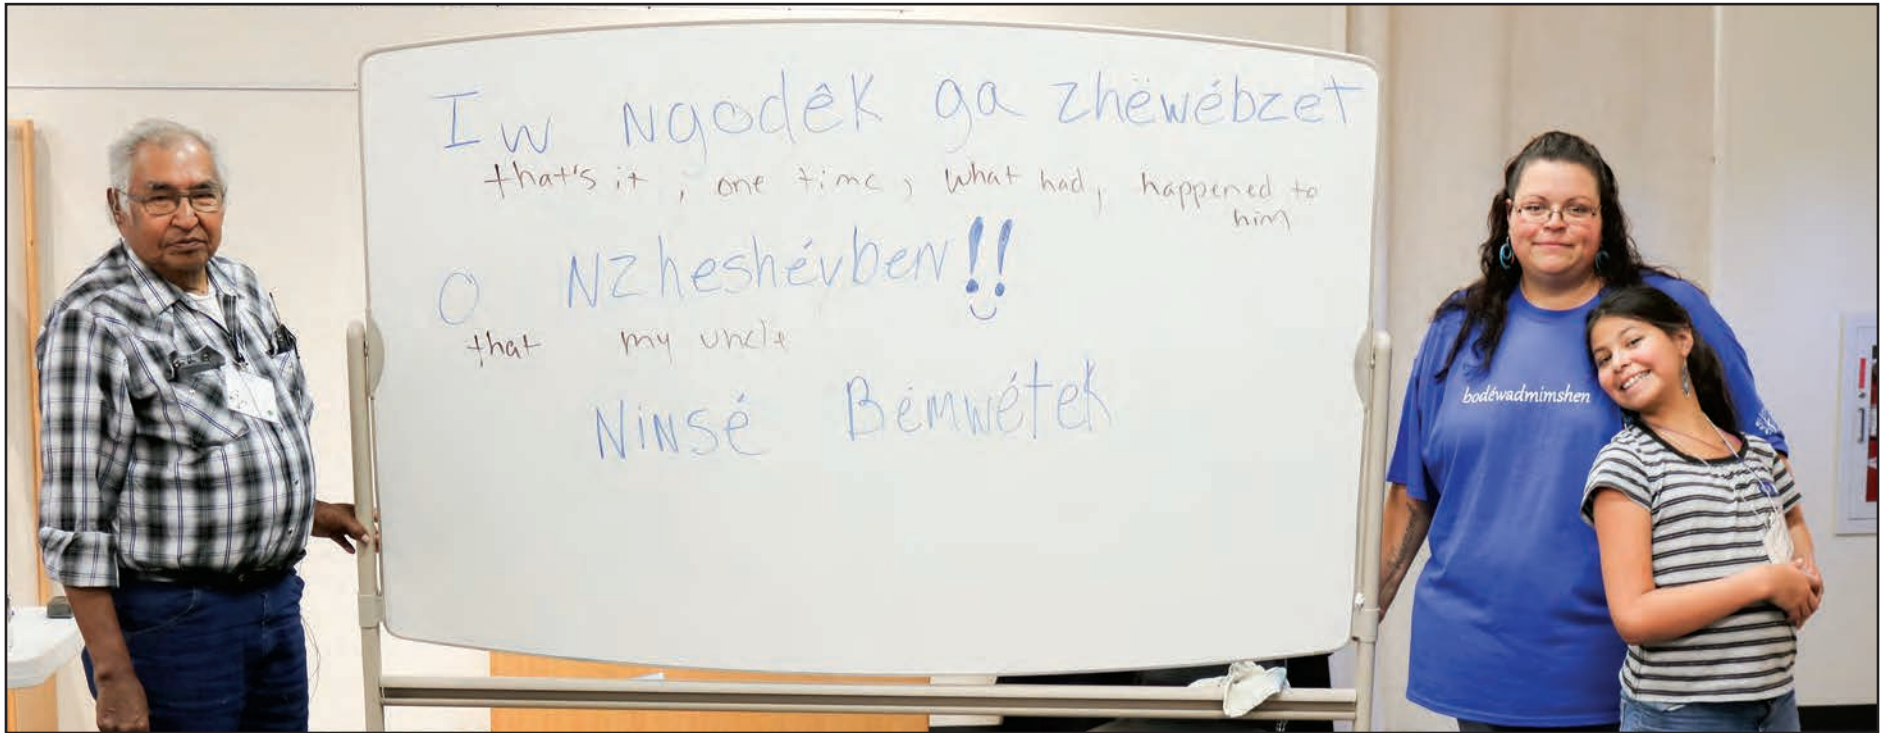 Iw Ngodêk ga zhëwébzet
that's it, one time, what had, happened to
him
O Nzheshévben!!
that my uncle
Ninsé Bémwétek
bodéwadmimshen